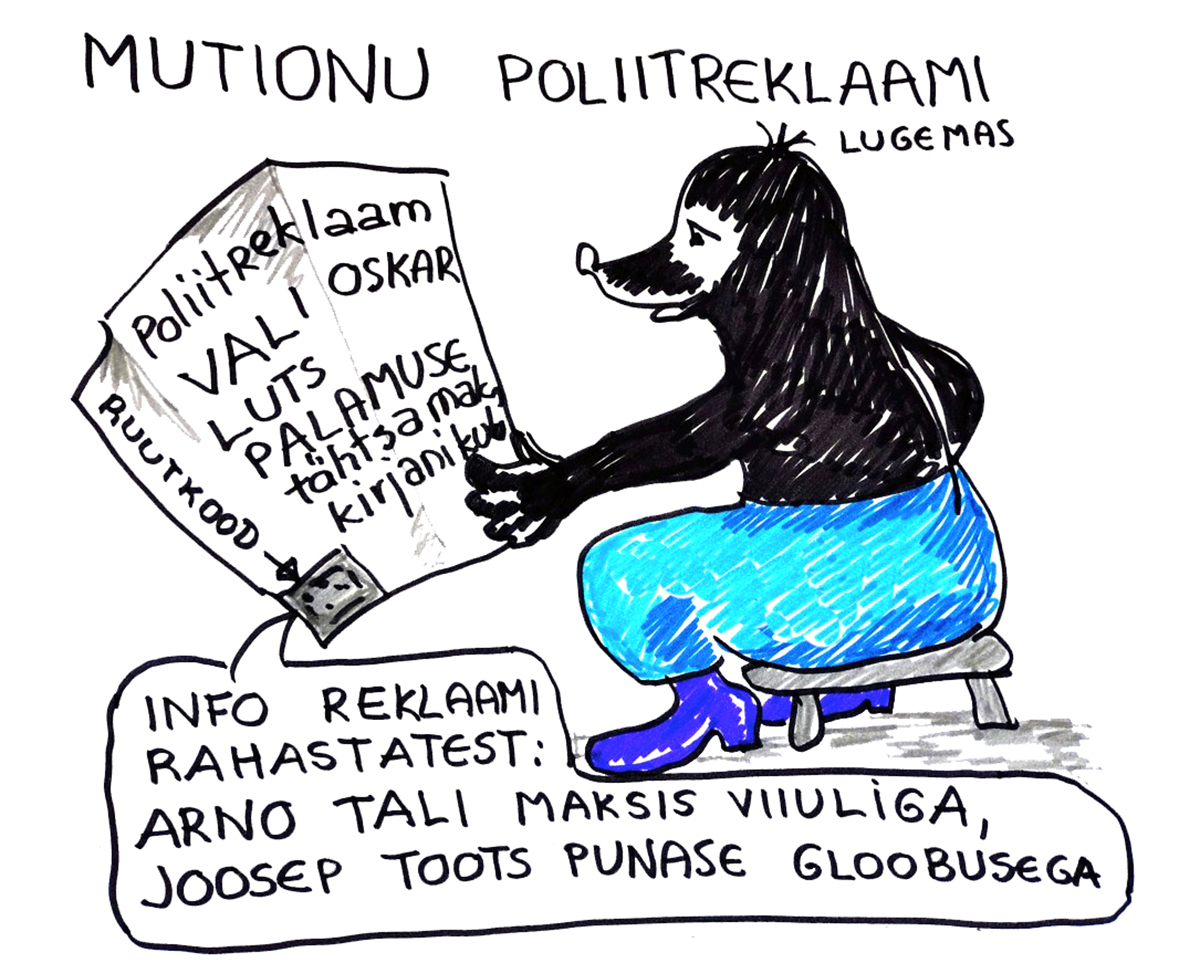 MUTIONU POLIITREKLAAMI
LUGEMAS
Poliitreklaam
VALI OSKAR
LUTS
PALAMUSE
tähtsamaks
kirjanikuks
RUUTKOOD
INFO REKLAAMI
RAHASTATEST:
ARNO TALI MAKSIS VIIULIGA,
JOOSEP TOOTS PUNASE GLOOBUSEGA